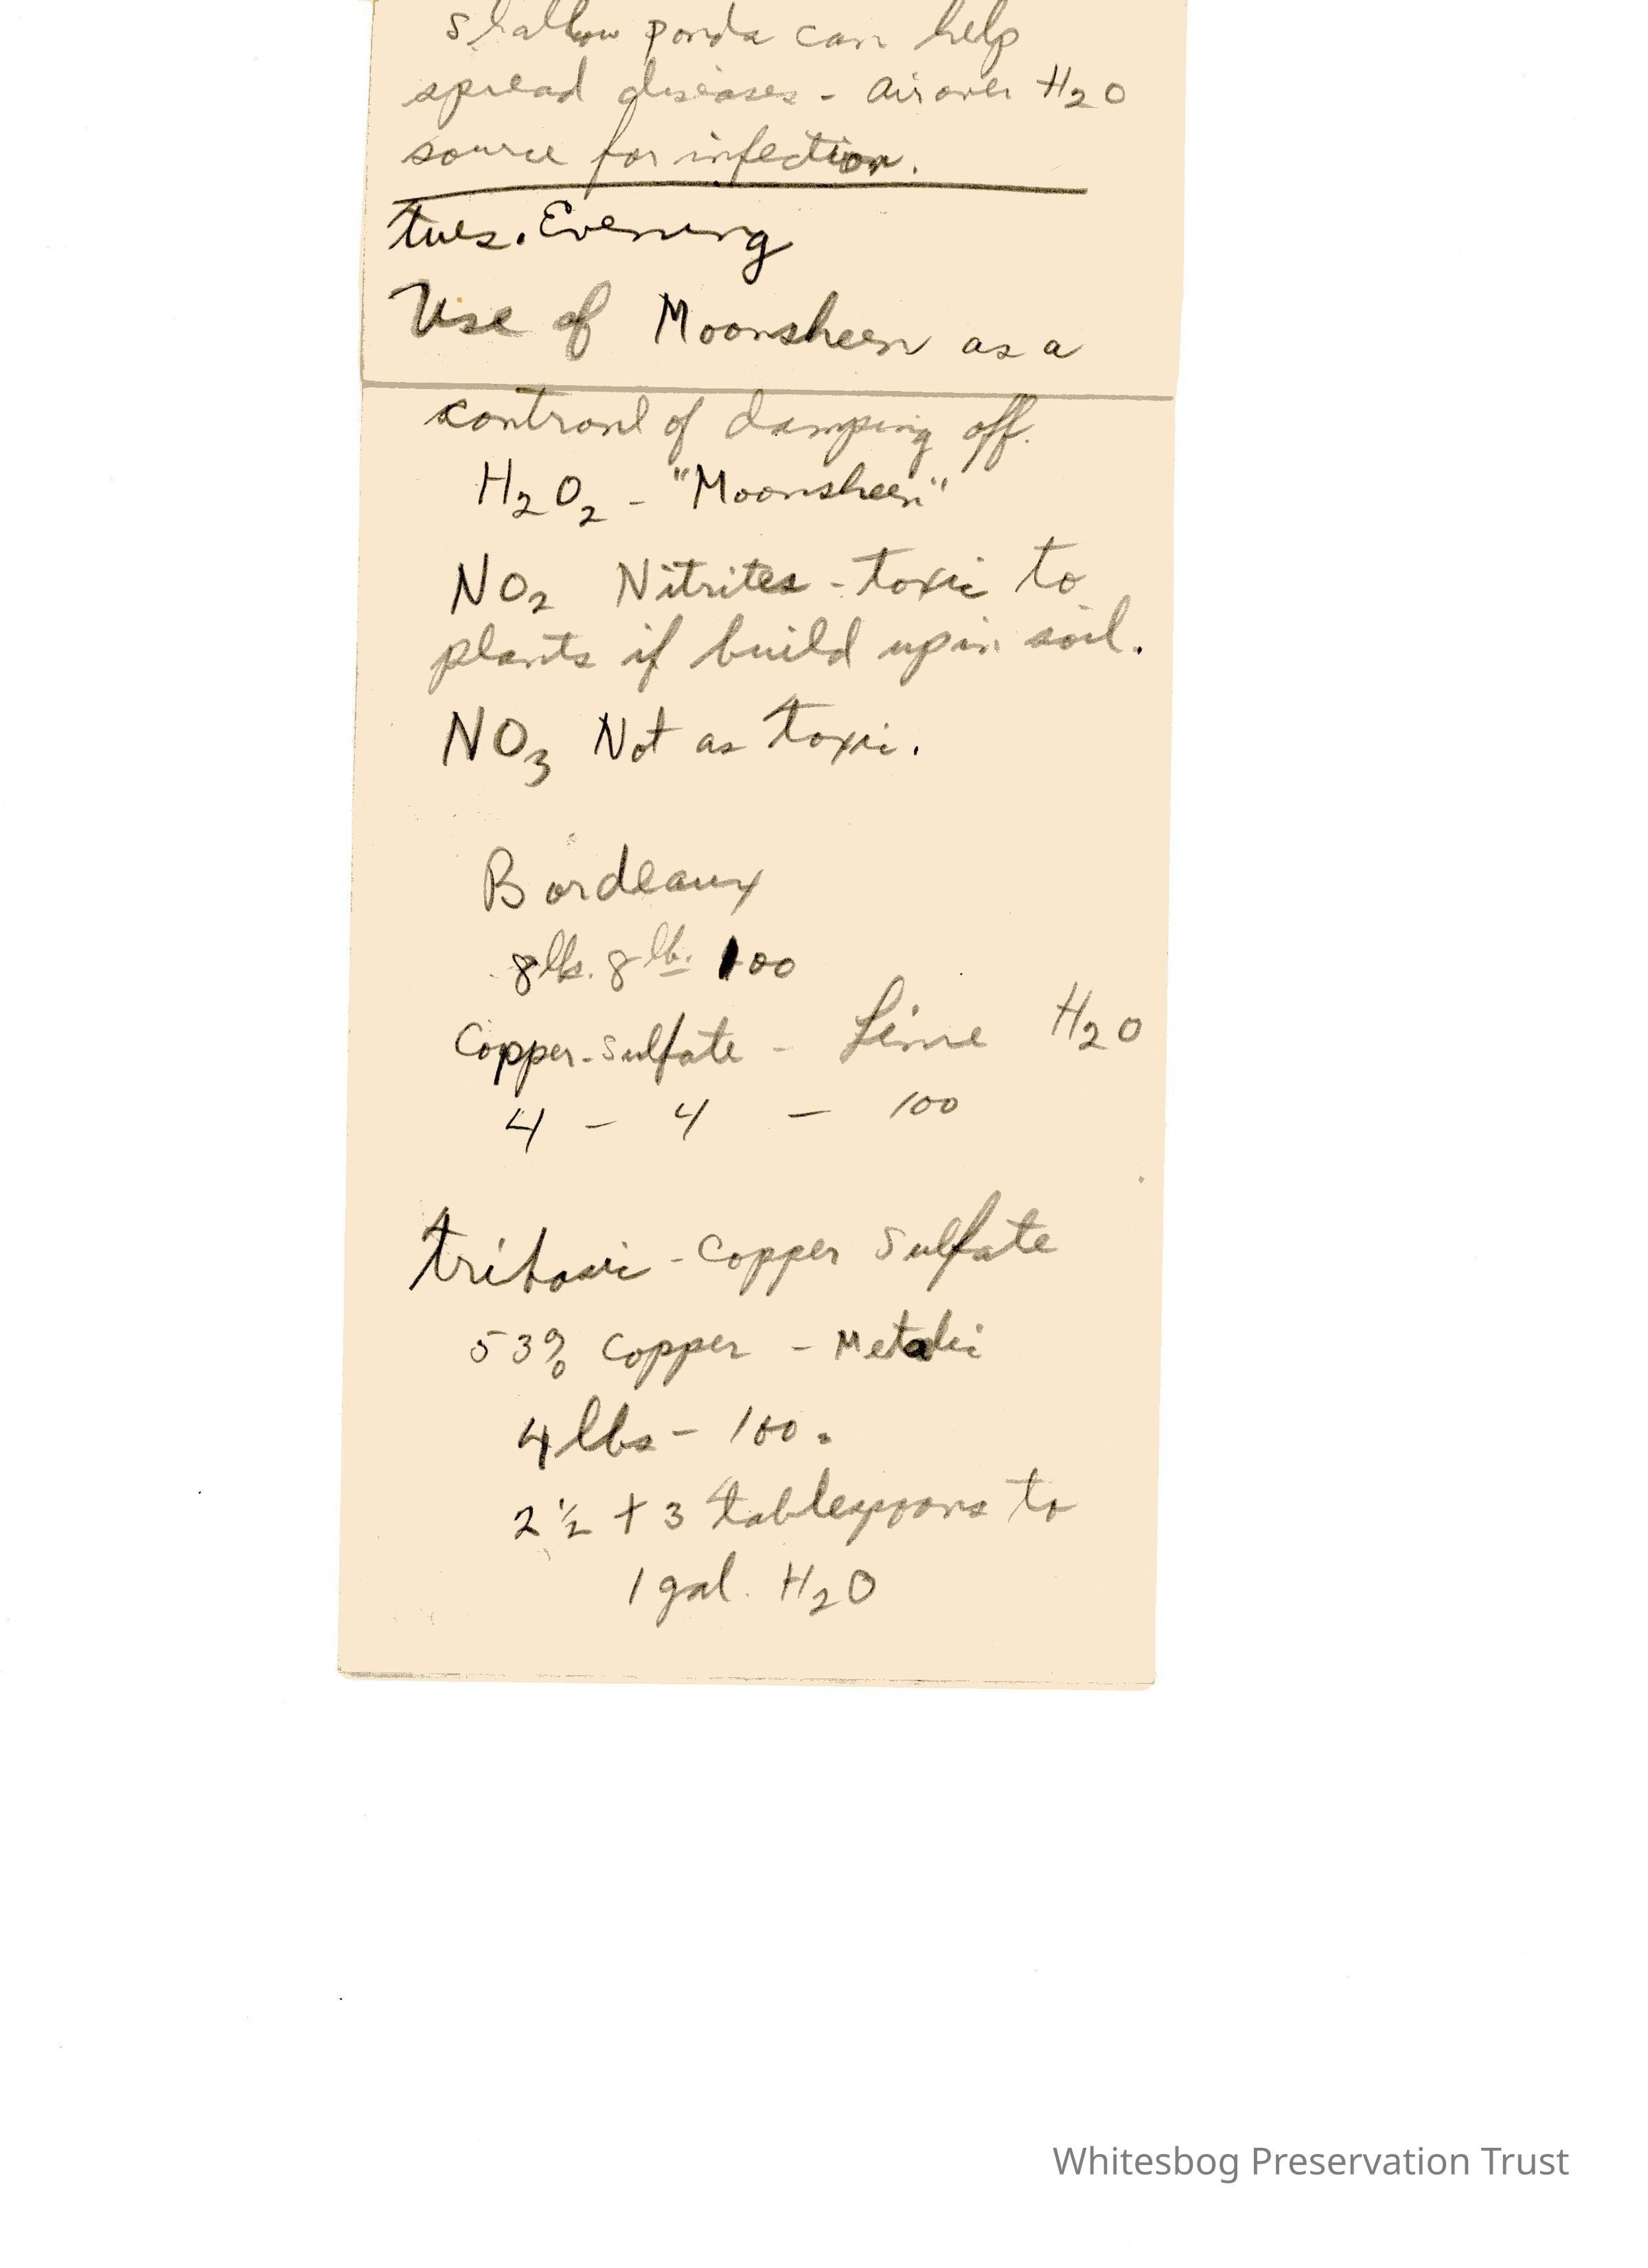 Shallow ponds can help
spread diseases - air over H2O
source for infection.
Tues. Evening
Use of Moonsheen as a
control of damping off.
H2O2 - "Moonsheen"
NO2 Nitrites - toxic to
plants if build up in soil.
NO3 Not as toxic.
Bordeaux
8 lbs. 8 lb. 100
Copper-Sulfate - Lime H2O
4 - 4 - 100
tribasic - Copper Sulfate
53% Copper - Metalic
4 lbs - 100.
2 1/2 + 3 tablespoons to
1 gal. H2O
Whitesbog Preservation Trust